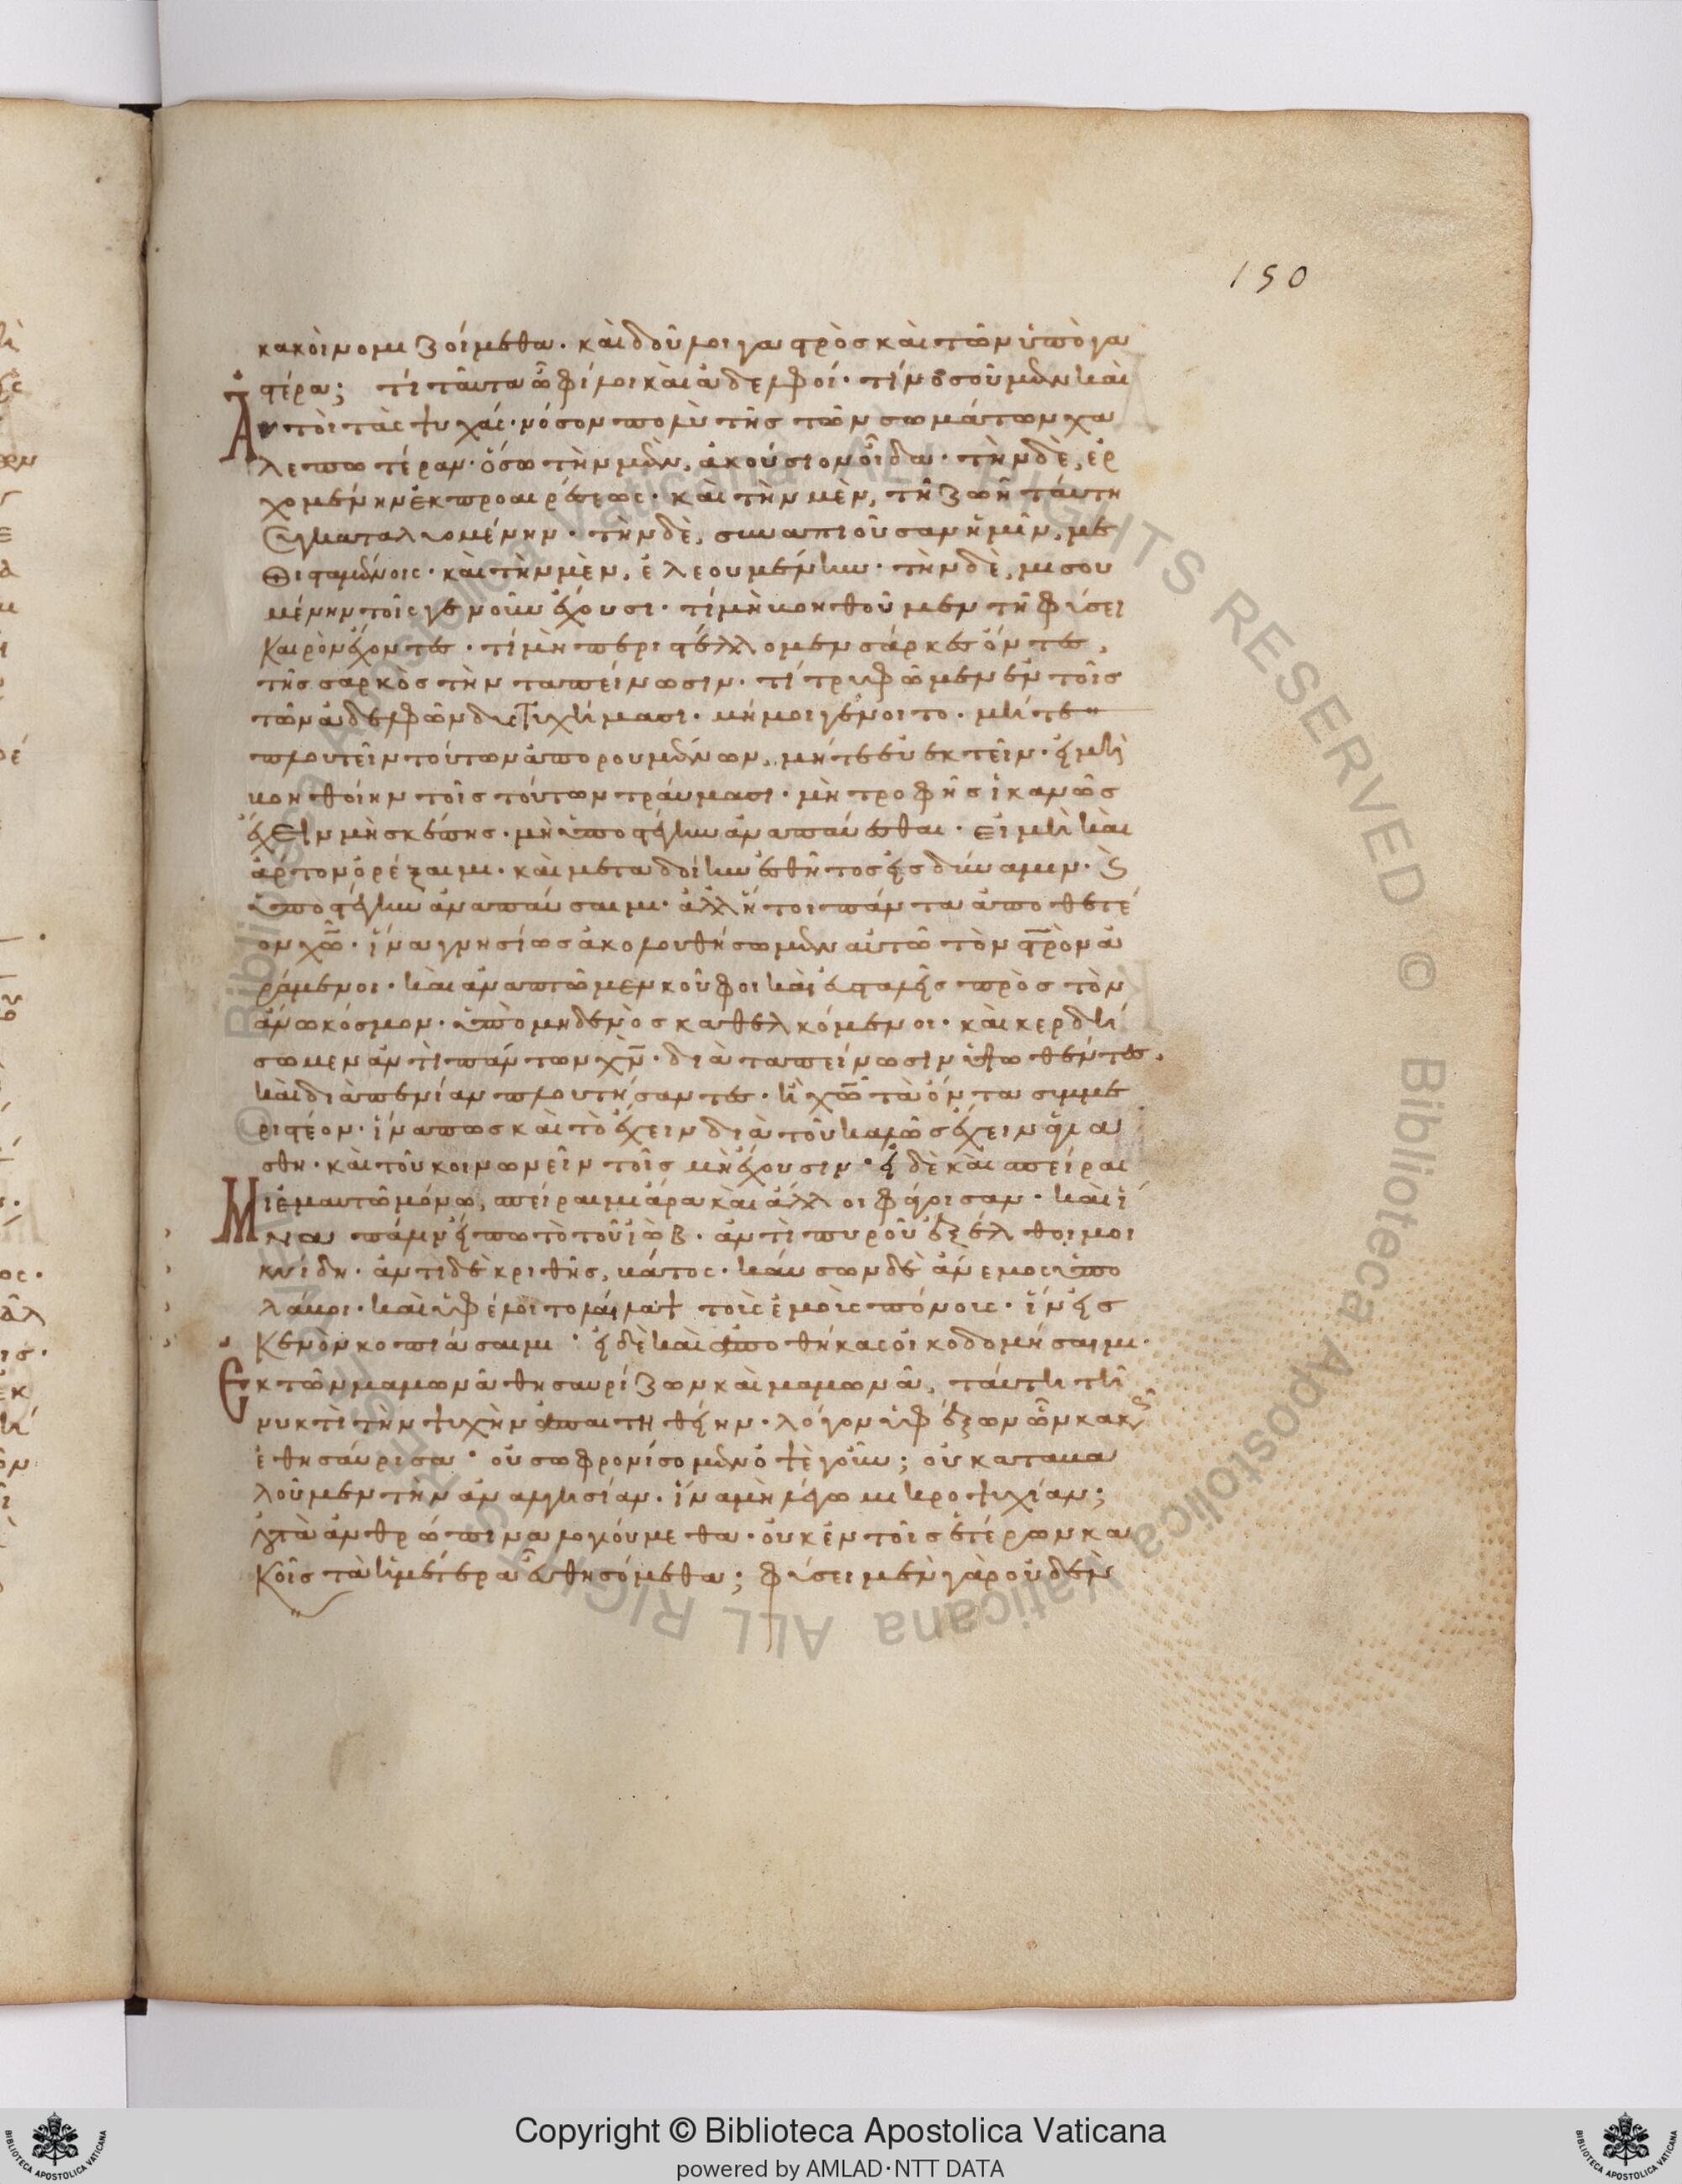 150
κακοὶ νομιζοίμεθα· καὶ δοῦλοι γαστρὸς καὶ τῶν ὑπὸ γα
στέρα; τί ταῦτα ὦ φίλοι καὶ ἀδελφοί· τί νοσοῦμεν καὶ
Αὐτοὶ τὰς ψυχάς· νόσον πολὺ τῆς τῶν σωμάτων χα
λεπωτέραν· ὅσω τὴν μὲν, ἀκούσιον οἶδα· τὴν δὲ, ἐρ
χομένην ἐκ προαιρέσεως· καὶ τὴν μὲν, τῆ ζωῆ ταύτη
συγκαταλυομένην· τὴν δὲ, συναπιοῦσαν ἡμῖν, με
θισταμένοις· καὶ τὴν μὲν, ἐλεουμένην· τὴν δὲ, μισου
μένην τοῖς γε νοῦν ἔχουσι· τί μὴ βοηθοῦμεν τῆ φύσει
καιρὸν ἔχοντες· τί μὴ περιστέλλομεν σάρκες ὄντες,
τῆς σαρκὸς τὴν ταπείνωσιν· τί τρυφῶμεν ἐν τοῖς
τῶν ἀδελφῶν δυστυχήμασι· μή μοι γένοιτο· μήτε
πλουτεῖν τούτων ἀπορουμένων, μήτε εὐεκτεῖν· εἰ μὴ
βοηθοίην τοῖς τούτων τραύμασι· μὴ τροφῆς ἱκανῶς
ἔχειν μὴ σκέπης· μὴ ὑπὸ στέγην ἀναπαύεσθαι· εἰ μὴ καὶ
ἄρτον ὀρέξαιμι· καὶ μεταδοίην ἐσθῆτος εἰς δύναμιν· κ
ὑπὸ στέγην ἀναπαύσαιμι· ἀλλ' ἤτοι πάντα ἀποθετέ
ον χῶ· ἵνα γνησίως ἀκολουθήσωμεν αὐτῶ τὸν στρὸν ἀ
ράμενοι· καὶ ἀναπτῶμεν κοῦφοι καὶ εὐσταλεῖς πρὸς τὸν
ἄνω κόσμον· ὑπὸ μηδενὸς καθελκόμενοι· καὶ κερδή
σωμεν ἀντὶ πάντων χν· διὰ ταπείνωσιν ὑψωθέντες.
καὶ διὰ πενίαν πλουτήσαντες· ἢ χῶ τὰ ὄντα συμμε
ριστέον· ἵνα πως καὶ τὸ ἔχειν διὰ τοῦ καλῶς ἔχειν ἁγια
σθῆ· καὶ τοῦ κοινωνεῖν τοῖς μὴ ἔχουσιν· εἰ δὲ καὶ σπείραι
Μι ἐμαυτῶ μόνω, σπείραιμι ἄρα καὶ ἄλλοι φάγοισαν· καὶ ἵ
να πάλιν εἴπω τὸ τοῦ ἰώβ· ἀντὶ πυροῦ ἐξέλθοι μοι
κνίδη· ἀντὶ δὲ κριθῆς, βάτος· καύσων δὲ ἄνεμος ὑπο
λάβοι· καὶ ὑφέλοιτο λαίλαψ τοῖς ἐμοῖς πόνοις· ἵν' εἰς
κενὸν κοπιάσαιμι· εἰ δὲ καὶ ἀποθήκας οἰκοδομήσαιμι·
Ἐκ τῶν μαμωνᾶ θησαυρίζων καὶ μαμωνᾶ, ταύτη τῆ
νυκτὶ τὴν ψυχὴν ἀπαιτηθείην· λόγον ὑφέξων ὧν κακῶς
ἐθησαύρισα· οὐ σωφρονίσομεν ὀψὲ γοῦν; οὐ καταβα
λοῦμεν τὴν ἀναλγησίαν· ἵνα μὴ λέγω μικροψυχίαν;
οὐ τὰ ἀνθρώπινα λογιούμεθα· οὐκ ἐν τοῖς ἑτέρων κα
κοῖς τὰ ἡμέτερα εὖ θησόμεθα; φύσει μὲν γὰρ οὐδὲν
Copyright © Biblioteca Apostolica Vaticana
powered by AMLAD·NTT DATA